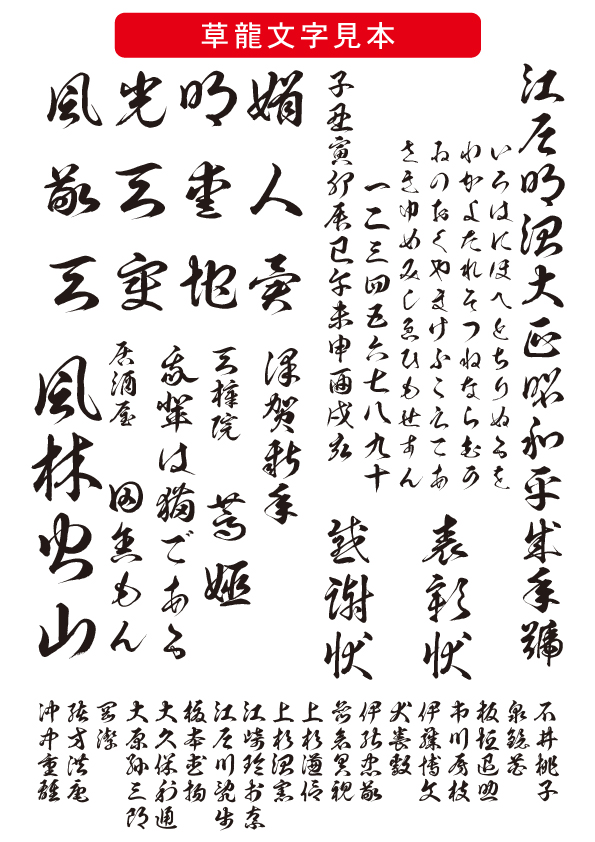 草龍文字見本
江戸明治大正昭和平成年號
いろはにほへとちりぬるを
わかよたれそつねならむう
ゐのおくやまけふこえてあ
さきゆめみしゑひもせすん
一二三四五六七八九十
子丑寅卯辰巳午未申酉戌亥
表彰状
感謝状
風光明媚
人
三
地
謹賀新年
三権院
我輩は猫である
居酒屋
風林火山
石井桃子
板垣退助
市川房枝
伊藤博文
犬養毅
伊能忠敬
上杉謙信
上杉治憲
江崎玲於奈
江戸川乱歩
榎本武揚
大久保利通
大原孫三郎
岡潔
緒方洪庵
沖中重雄